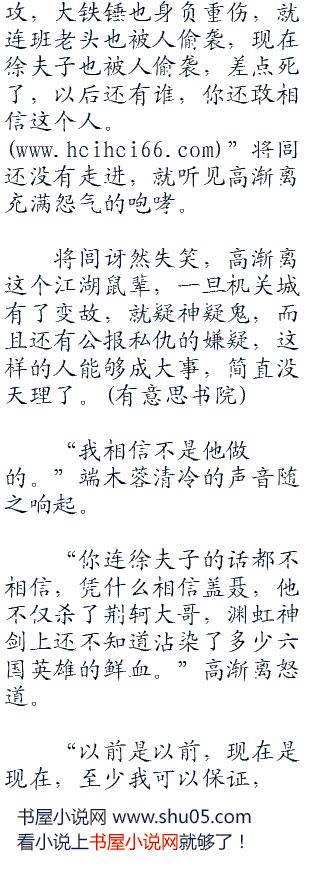 攻，大铁锤也身负重伤，就
连班老头也被人偷袭，现在
徐夫子也被人偷袭，差点死
了，以后还有谁，你还敢相
信这个人。
(www.hcihci66.com)”将闾
还没有走进，就听见高渐离
充满怨气的咆哮。
将闾讶然失笑，高渐离
这个江湖鼠辈，一旦机关城
有了变故，就疑神疑鬼，而
且还有公报私仇的嫌疑，这
样的人能够成大事，简直没
天理了。(有意思书院)
“我相信不是他做
的。”端木蓉清冷的声音随
之响起。
“你连徐夫子的话都不
相信，凭什么相信盖聂，他
不仅杀了荆轲大哥，渊虹神
剑上还不知道沾染了多少六
国英雄的鲜血。”高渐离怒
道。
“以前是以前，现在是
现在，至少我可以保证，
书屋小说网 www.shu05.com
看小说上书屋小说网就够了！